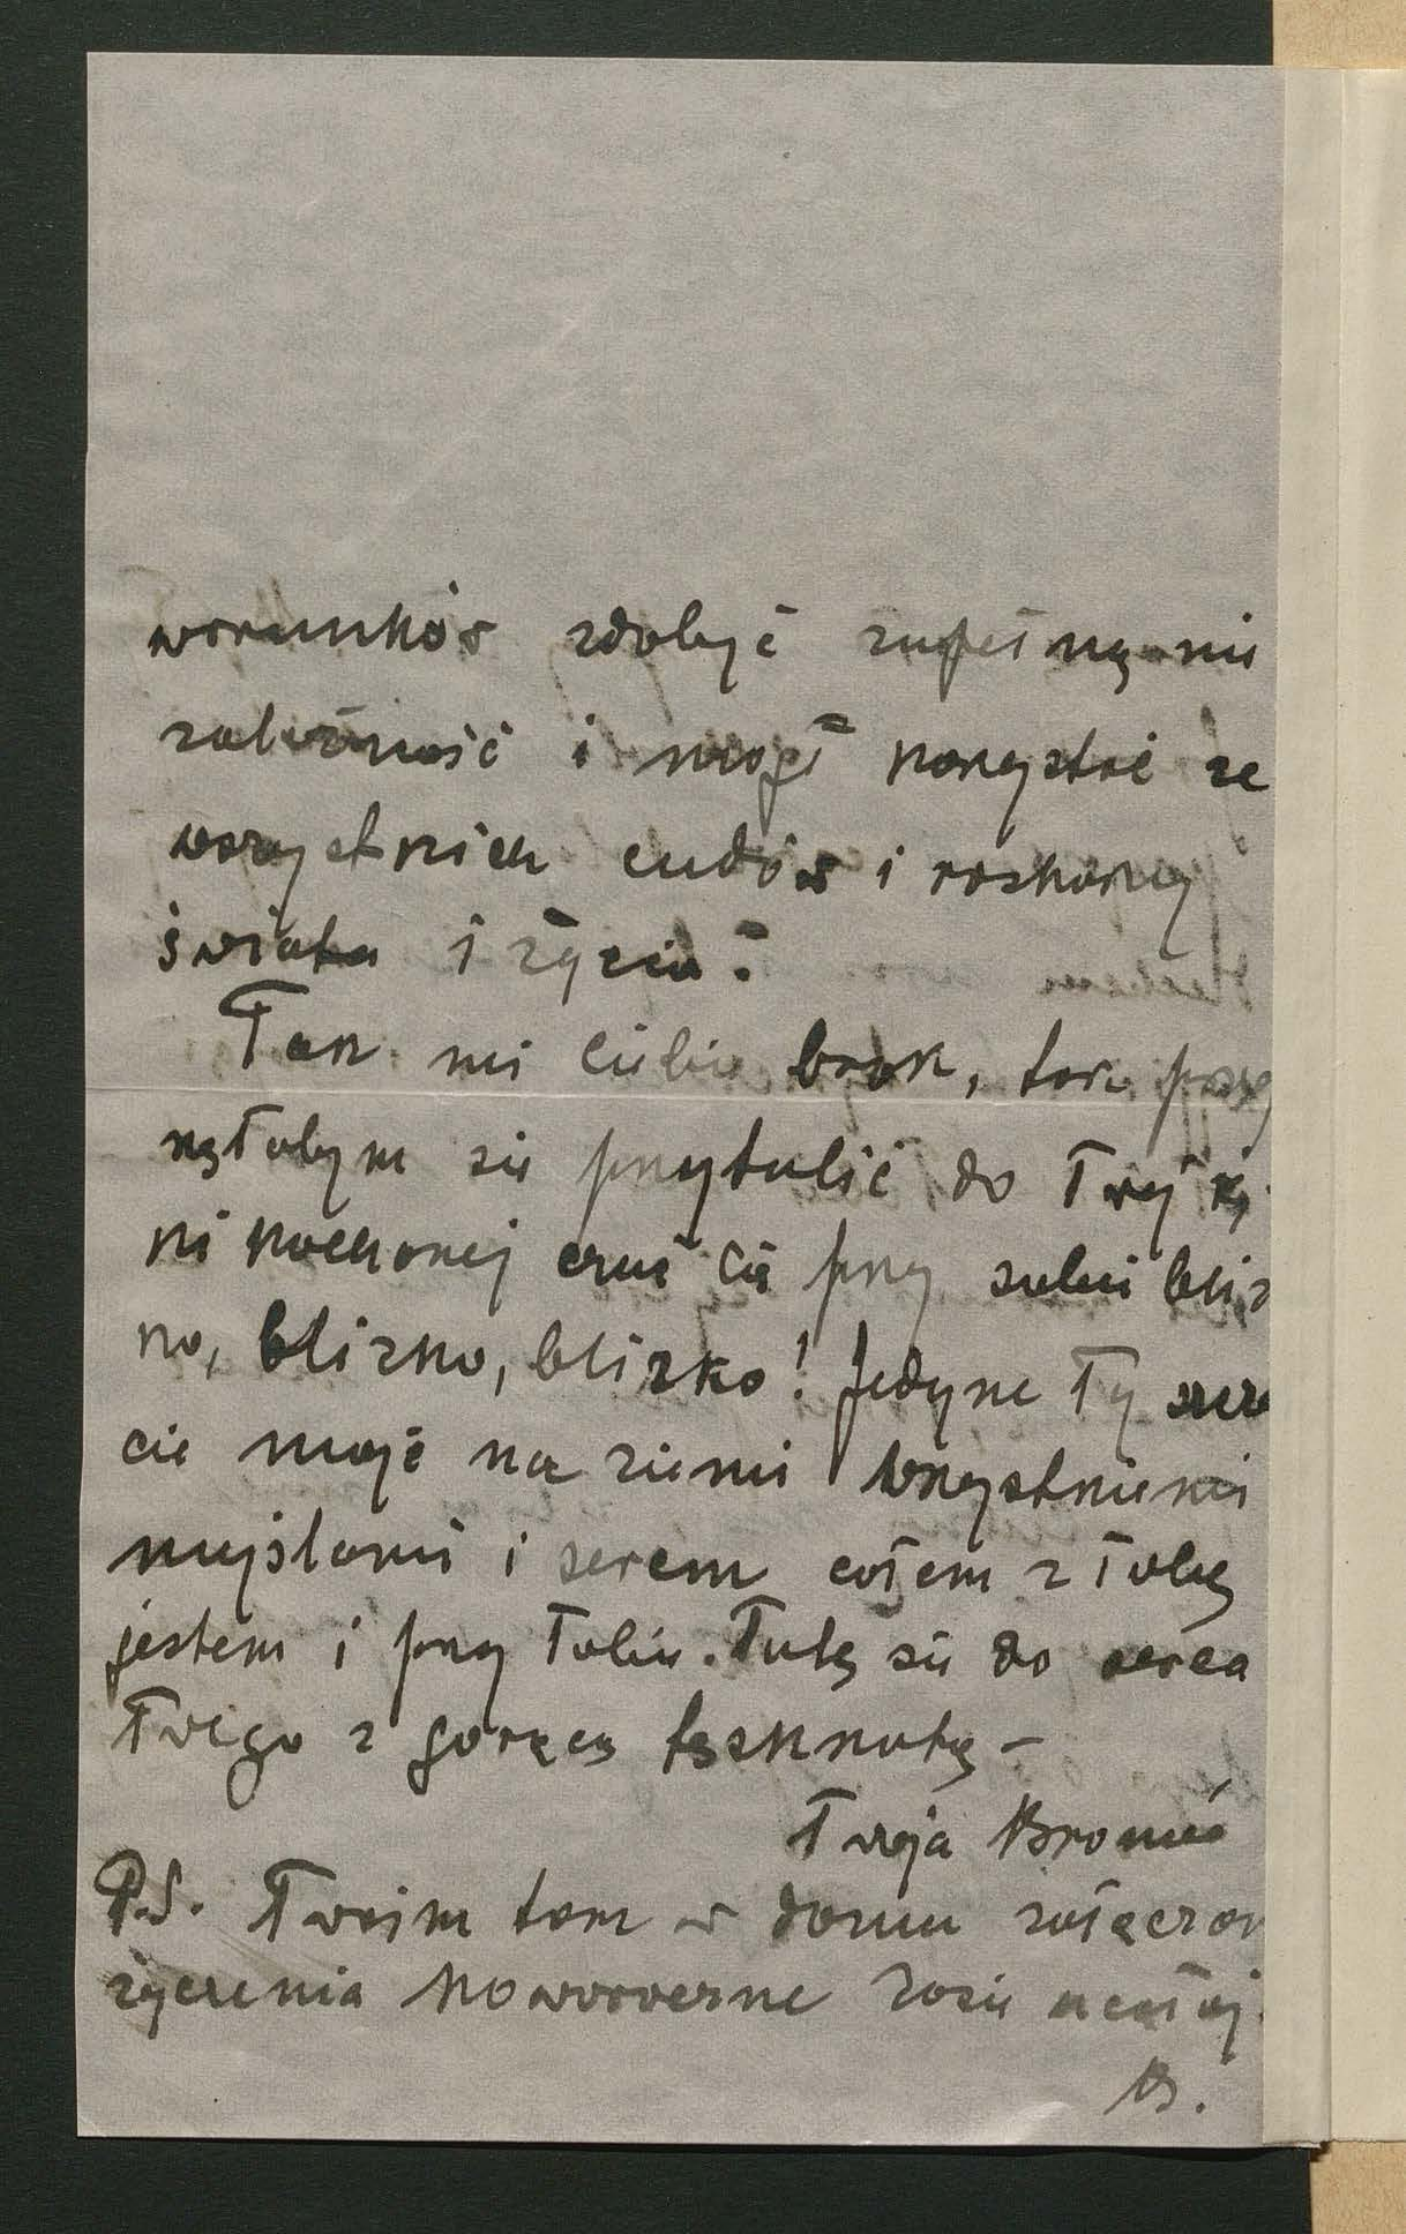 warunków zdobyć zupełną nie
zależność i mógł korzystać ze
wszystkich cudów i rozkoszy
świata i życia?
Tak mi Ciebie brak, tak prag
nęłabym się przytulić do Twej rą
ki kochanej czuć Cię przy sobie bliz
ko, blizko, blizko! Jedyne Ty szczę
cie moje na ziemi wszystkiemi
myślami i sercem całem z Tobą
jestem i przy Tobie. Tulę się do serca
Twego z gorącą tęsknotą –
Twoja Bronia
P.S. Twoim tam w domu załączam
życzenia noworoczne Zosię ucałuj.
B.